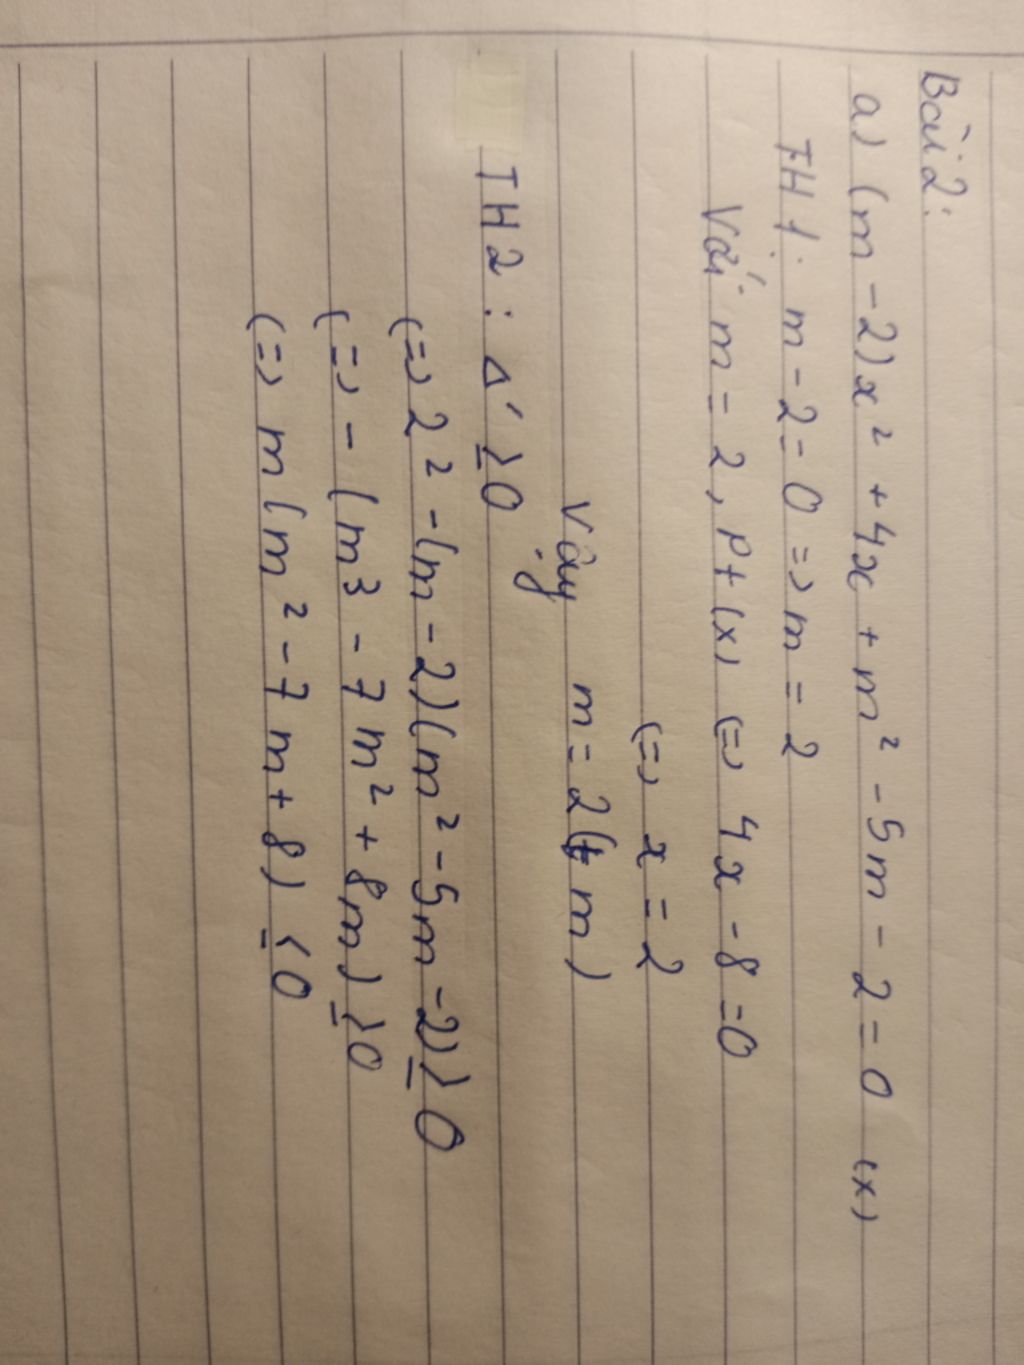 Bài 2:
a) (m - 2)x² + 4x + m² - 5m - 2 = 0 (x)
TH1: m - 2 = 0 => m = 2
Với m = 2, Pt (x) (=) 4x - 8 = 0
(=) x = 2
Vậy m = 2 (t m)
TH2: Δ' ≥ 0
(=) 2² - (m - 2)(m² - 5m - 2) ≥ 0
(=) - (m³ - 7m² + 8m) ≥ 0
(=) m(m² - 7m + 8) ≤ 0